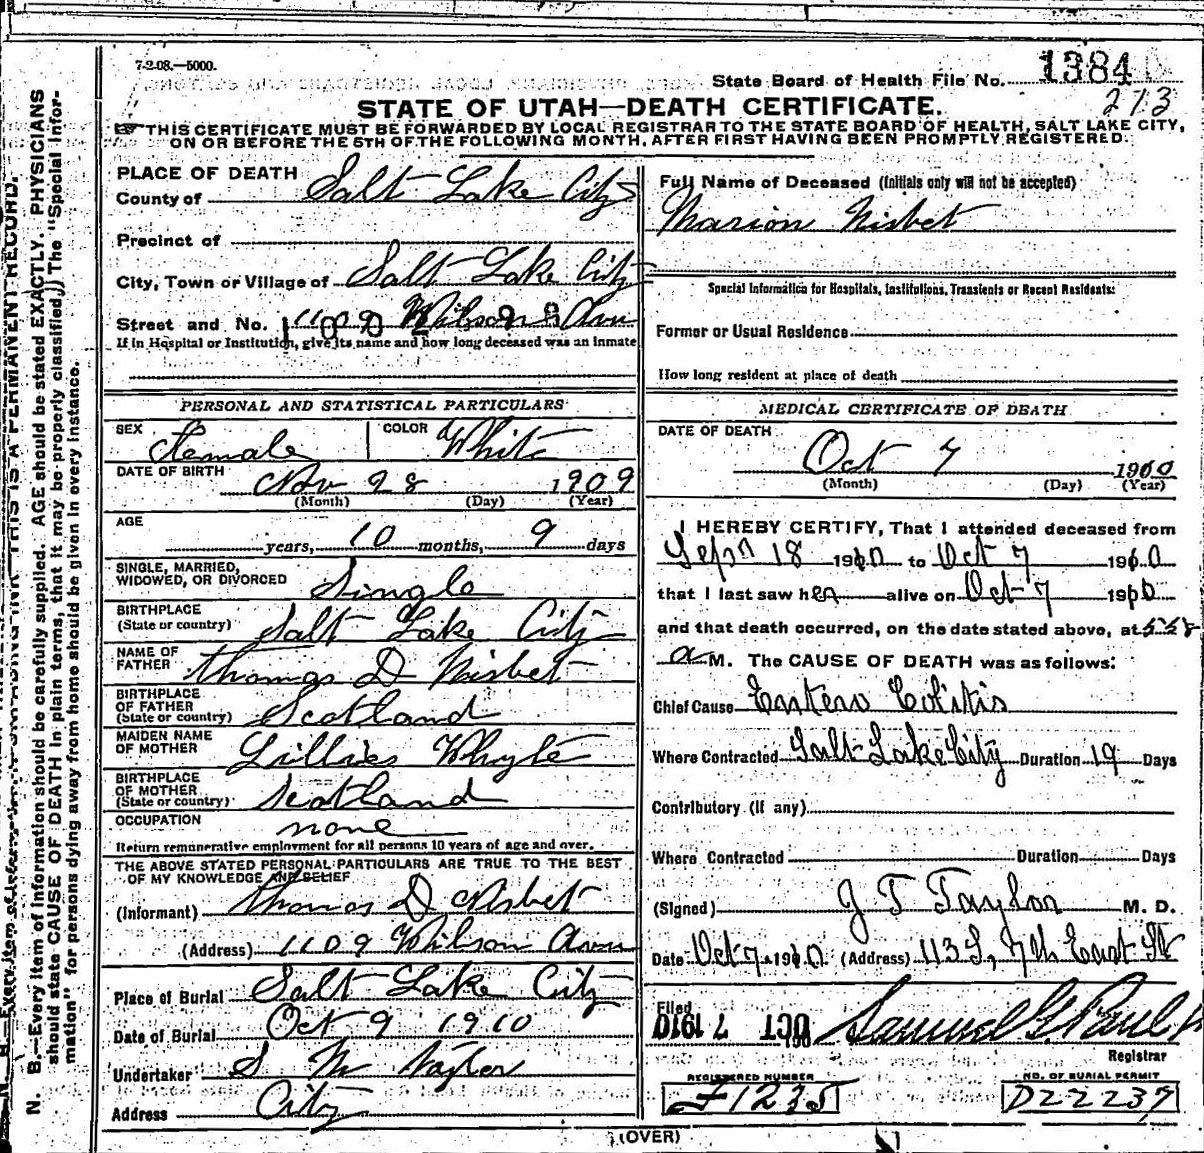 7-2-08.—5000.
State Board of Health File No. 1384
213
STATE OF UTAH—DEATH CERTIFICATE.
THIS CERTIFICATE MUST BE FORWARDED BY LOCAL REGISTRAR TO THE STATE BOARD OF HEALTH, SALT LAKE CITY,
ON OR BEFORE THE 5TH OF THE FOLLOWING MONTH, AFTER FIRST HAVING BEEN PROMPTLY REGISTERED.
N. B.—Every item of information should be carefully supplied. AGE should be stated EXACTLY. PHYSICIANS
should state CAUSE OF DEATH in plain terms, that it may be properly classified. The "Special Infor-
mation" for persons dying away from home should be given in every instance.
THIS IS A PERMANENT RECORD.
PLACE OF DEATH
County of Salt Lake City
Precinct of
City, Town or Village of Salt Lake City
Street and No. 1109 Wilson Ave
If in Hospital or Institution, give its name and how long deceased was an inmate
PERSONAL AND STATISTICAL PARTICULARS
SEX Female COLOR White
DATE OF BIRTH Nov 28 1909
(Month) (Day) (Year)
AGE years, 10 months, 9 days
SINGLE, MARRIED,
WIDOWED, OR DIVORCED Single
BIRTHPLACE
(State or country) Salt Lake City
NAME OF
FATHER Thomas D Nisbet
BIRTHPLACE
OF FATHER
(State or country) Scotland
MAIDEN NAME
OF MOTHER Lillies Whyte
BIRTHPLACE
OF MOTHER
(State or country) Scotland
OCCUPATION none
Return remunerative employment for all persons 10 years of age and over.
THE ABOVE STATED PERSONAL PARTICULARS ARE TRUE TO THE BEST
OF MY KNOWLEDGE AND BELIEF
(Informant) Thomas D Nisbet
(Address) 1109 Wilson Ave
Place of Burial Salt Lake City
Date of Burial Oct 9 1910
Undertaker S M Taylor
Address City
Full Name of Deceased (Initials only will not be accepted)
Marion Nisbet
Special Information for Hospitals, Institutions, Transients or Recent Residents:
Former or Usual Residence
How long resident at place of death
MEDICAL CERTIFICATE OF DEATH
DATE OF DEATH
Oct 7 1910
(Month) (Day) (Year)
I HEREBY CERTIFY, That I attended deceased from
Sept 18 1910 to Oct 7 1910
that I last saw her alive on Oct 7 1910
and that death occurred, on the date stated above, at
a M. The CAUSE OF DEATH was as follows:
Chief Cause Entero Colitis
Where Contracted Salt Lake City Duration 19 Days
Contributory (if any)
Where Contracted Duration Days
(Signed) J T Taylor M. D.
Date Oct 7 1910 (Address) 113 S, 7th East St
Filed OCT 7 1910 Samuel G. Paul
Registrar
REGISTERED NUMBER
F1235
NO. OF BURIAL PERMIT
D22237
(OVER)